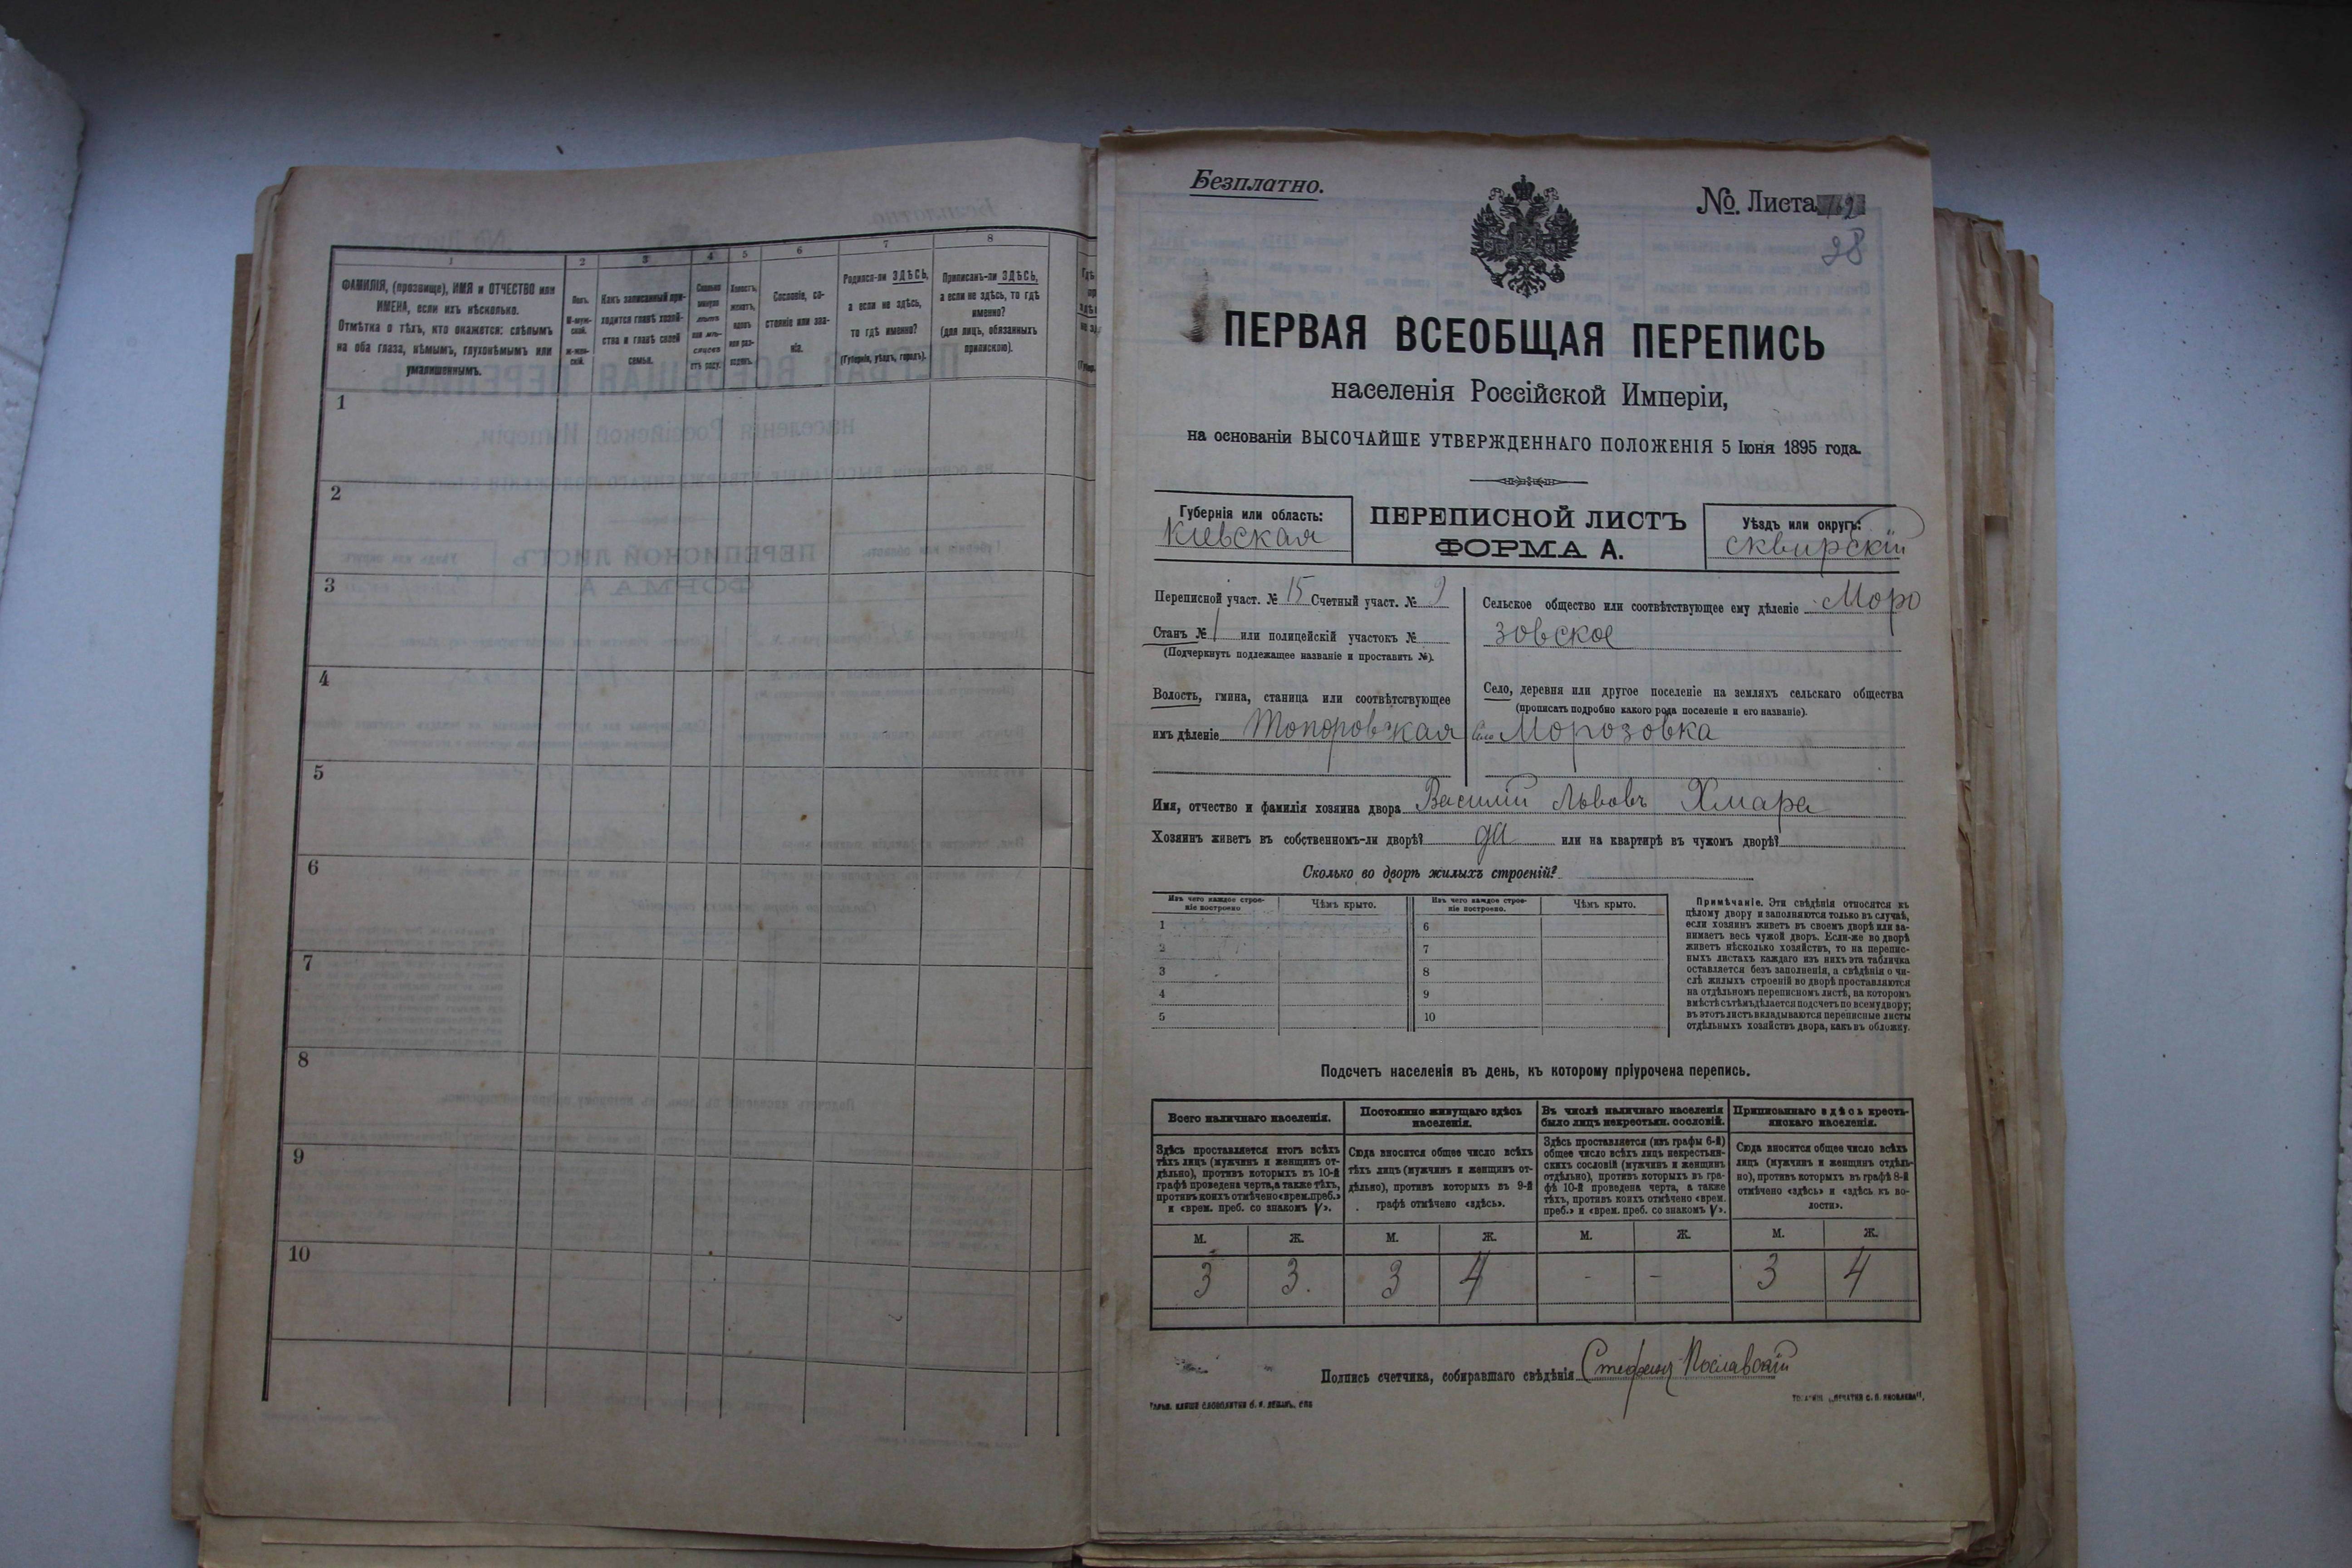 1
2
3
4
5
6
7
8
ФАМИЛІЯ, (прозвище), ИМЯ и ОТЧЕСТВО или
ИМЕНА, если ихъ нѣсколько.
Отмѣтка о тѣхъ, кто окажется: слѣпымъ
на оба глаза, нѣмымъ, глухонѣмымъ или
умалишеннымъ.
Полъ.
М-муж-
ской.
ж-жен-
скій.
Какъ записанный при-
ходится главѣ хозяй-
ства и главѣ своей
семьи.
Сколько
минуло
лѣтъ
или мѣ-
сяцевъ
отъ роду.
Холостъ,
женатъ,
вдовъ
или раз-
веденъ.
Сословіе, со-
стояніе или зва-
ніе.
Родился-ли ЗДѢСЬ,
а если не здѣсь,
то гдѣ именно?
(Губернія, уѣздъ, городъ).
Приписанъ-ли ЗДѢСЬ,
а если не здѣсь, то гдѣ
именно?
(для лицъ, обязанныхъ
припискою).
1
2
3
4
5
6
7
8
9
10
Безплатно.
№. Листа
38
ПЕРВАЯ ВСЕОБЩАЯ ПЕРЕПИСЬ
населенія Россійской Имперіи,
на основаніи ВЫСОЧАЙШЕ УТВЕРЖДЕННАГО ПОЛОЖЕНІЯ 5 Іюня 1895 года.
Губернія или область:
Кіевская
ПЕРЕПИСНОЙ ЛИСТЪ
ФОРМА А.
Уѣздъ или округъ:
Сквирскій
Переписной участ. № 15 Счетный участ. № 9
Станъ № 1 или полицейскій участокъ №
(Подчеркнуть подлежащее названіе и проставить №).
Волость, гмина, станица или соотвѣтствующее
имъ дѣленіе Топоровская
Сельское общество или соотвѣтствующее ему дѣленіе Моро
зовское
Село, деревня или другое поселеніе на земляхъ сельскаго общества
(прописать подробно какого рода поселеніе и его названіе).
Село Морозовка
Имя, отчество и фамилія хозяина двора Василій Львовъ Хмара
Хозяинъ живетъ въ собственномъ-ли дворѣ? да или на квартирѣ въ чужомъ дворѣ?
Сколько во дворѣ жилыхъ строеній?
Изъ чего каждое строе-
ніе построено
Чѣмъ крыто.
Изъ чего каждое строе-
ніе построено.
Чѣмъ крыто.
1
6
2
7
3
8
4
9
5
10
Примѣчаніе. Эти свѣдѣнія относятся къ
цѣлому двору и заполняются только въ случаѣ,
если хозяинъ живетъ въ своемъ дворѣ или за-
нимаетъ весь чужой дворъ. Если-же во дворѣ
живетъ нѣсколько хозяйствъ, то на перепис-
ныхъ листахъ каждаго изъ нихъ эта табличка
оставляется безъ заполненія, а свѣдѣнія о чи-
слѣ жилыхъ строеній во дворѣ проставляются
на отдѣльномъ переписномъ листѣ, на которомъ
вмѣстѣ съ тѣмъ дѣлается подсчетъ по всему двору;
въ этотъ листъ вкладываются переписные листы
отдѣльныхъ хозяйствъ двора, какъ въ обложку.
Подсчетъ населенія въ день, къ которому пріурочена перепись.
Всего наличнаго населенія.
Постоянно живущаго здѣсь
населенія.
Въ числѣ наличнаго населенія
было лицъ некрестьян. сословій.
Приписаннаго здѣсь кресть-
янскаго населенія.
Здѣсь проставляется итогъ всѣхъ
тѣхъ лицъ (мужчинъ и женщинъ от-
дѣльно), противъ которыхъ въ 10-й
графѣ проведена черта, а также тѣхъ,
противъ коихъ отмѣчено «врем. преб.»
и «врем. преб. со знакомъ V».
Сюда вносится общее число всѣхъ
тѣхъ лицъ (мужчинъ и женщинъ от-
дѣльно), противъ которыхъ въ 9-й
графѣ отмѣчено «здѣсь».
Здѣсь проставляется (изъ графы 6-й)
общее число всѣхъ лицъ некрестьян-
скихъ сословій (мужчинъ и женщинъ
отдѣльно), противъ которыхъ въ гра-
фѣ 10-й проведена черта, а также
тѣхъ, противъ коихъ отмѣчено «врем.
преб.» и «врем. преб. со знакомъ V».
Сюда вносится общее число всѣхъ
лицъ (мужчинъ и женщинъ отдѣль-
но), противъ которыхъ въ графѣ 8-й
отмѣчено «здѣсь» и «здѣсь къ во-
лости».
М. Ж. М. Ж. М. Ж. М. Ж.
3 3. 3 4 - - 3 4
Подпись счетчика, собиравшаго свѣдѣнія Стефанъ